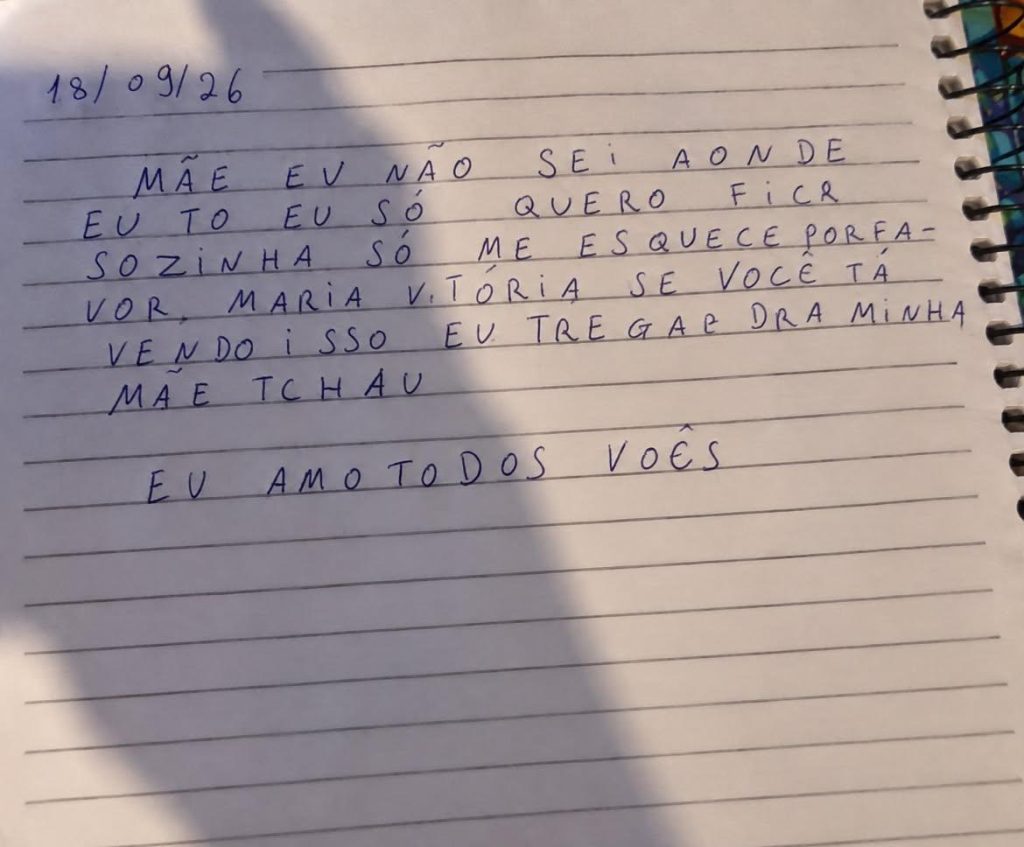 18/09/26
MÃE EU NÃO SEI AONDE
EU TO EU SÓ QUERO FICR
SOZINHA SÓ ME ESQUECE PORFA-
VOR, MARIA VITÓRIA SE VOCÊ TÁ
VENDO ISSO EU TREGAR DRA MINHA
MÃE TCHAU
EU AMO TODOS VOÊS